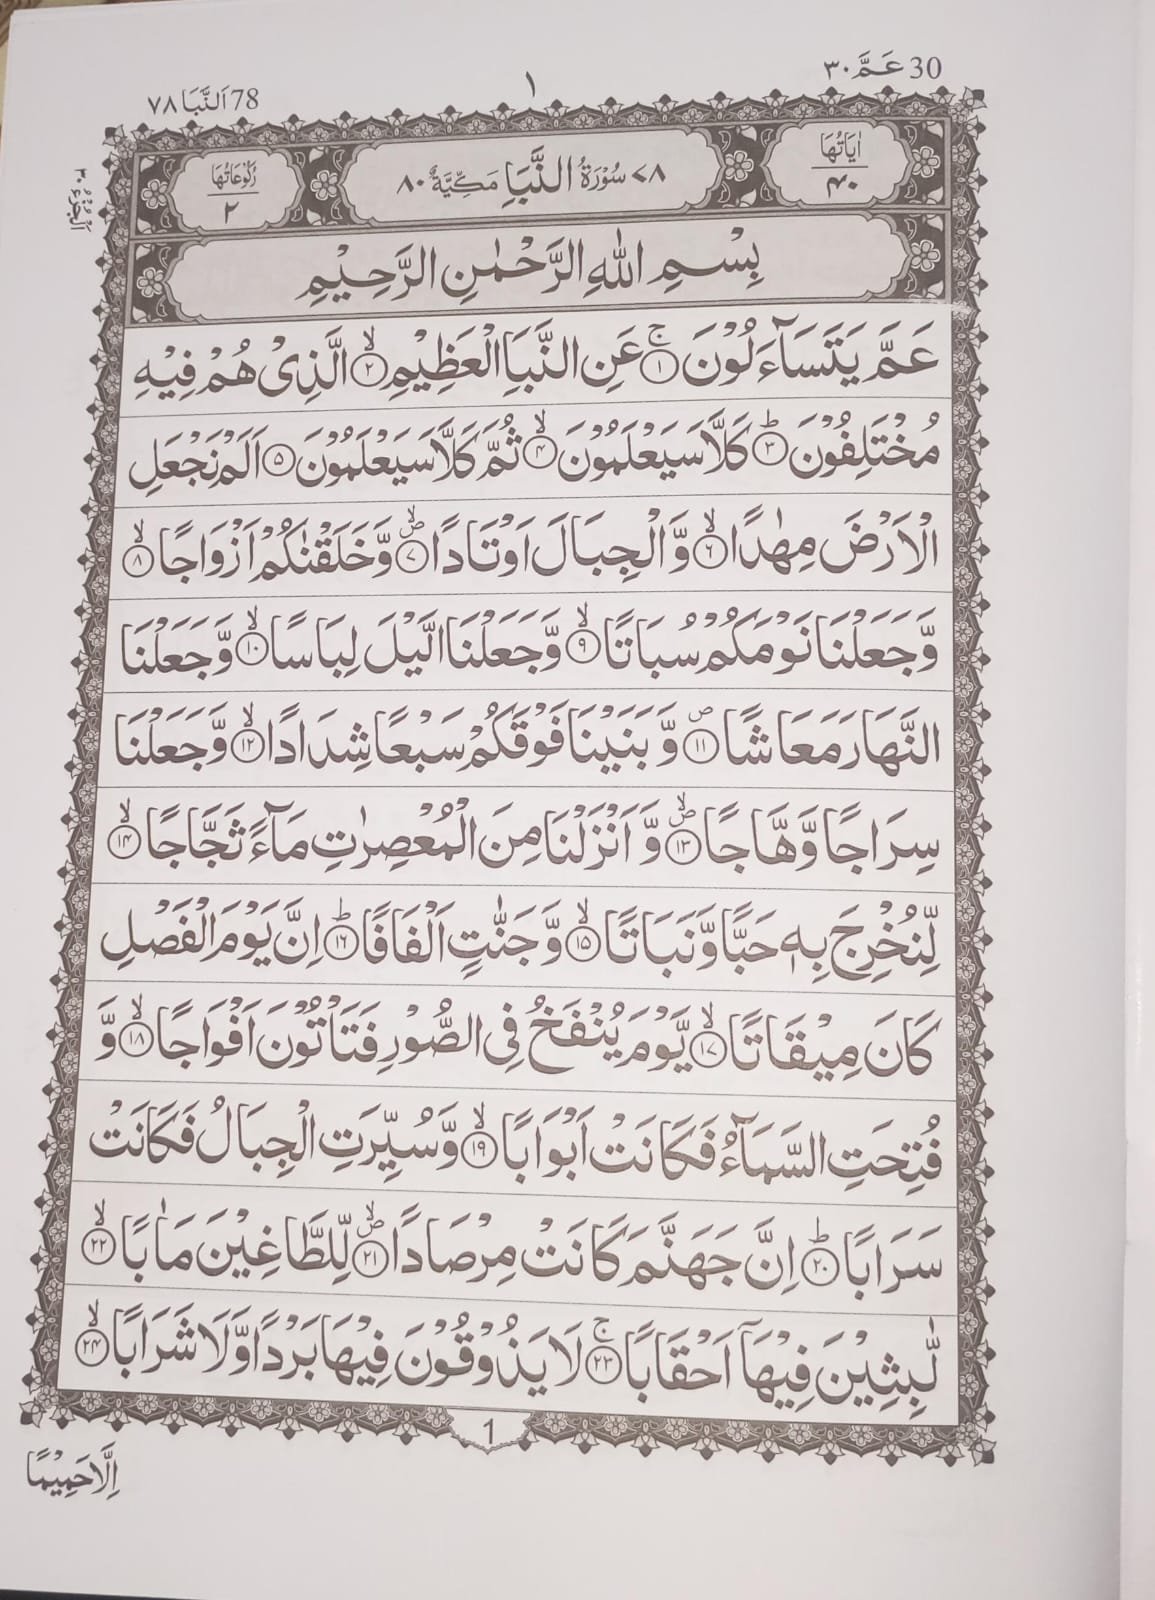 30 عَمَّ ٣٠
١
78 اَلنَّبَا ٧٨
اٰيَاتُهَا ٤٠
٧٨ سُوْرَةُ النَّبَاِ مَكِّيَّةٌ ٨٠
رُكُوْعَاتُهَا ٢
اَلْجُزْءُ ٣٠
بِسْمِ اللّٰهِ الرَّحْمٰنِ الرَّحِيْمِ
عَمَّ يَتَسَآءَلُوْنَ ۚ ﴿١﴾ عَنِ النَّبَاِ الْعَظِيْمِ ۙ ﴿٢﴾ الَّذِىْ هُمْ فِيْهِ
مُخْتَلِفُوْنَ ؕ ﴿٣﴾ كَلَّا سَيَعْلَمُوْنَ ۙ ﴿٤﴾ ثُمَّ كَلَّا سَيَعْلَمُوْنَ ﴿٥﴾ اَلَمْ نَجْعَلِ
الْاَرْضَ مِهٰدًا ۙ ﴿٦﴾ وَّالْجِبَالَ اَوْتَادًا ۙ ۖ ﴿٧﴾ وَّخَلَقْنٰكُمْ اَزْوَاجًا ۙ ﴿٨﴾
وَّجَعَلْنَا نَوْمَكُمْ سُبَاتًا ۙ ﴿٩﴾ وَّجَعَلْنَا الَّيْلَ لِبَاسًا ۙ ﴿١٠﴾ وَّجَعَلْنَا
النَّهَارَ مَعَاشًا ۖ ﴿١١﴾ وَّبَنَيْنَا فَوْقَكُمْ سَبْعًا شِدَادًا ۙ ﴿١٢﴾ وَّجَعَلْنَا
سِرَاجًا وَّهَّاجًا ۙ ۖ ﴿١٣﴾ وَّاَنْزَلْنَا مِنَ الْمُعْصِرٰتِ مَآءً ثَجَّاجًا ۙ ﴿١٤﴾
لِّنُخْرِجَ بِهٖ حَبًّا وَّنَبَاتًا ۙ ﴿١٥﴾ وَّجَنّٰتٍ اَلْفَافًا ؕ ﴿١٦﴾ اِنَّ يَوْمَ الْفَصْلِ
كَانَ مِيْقَاتًا ۙ ﴿١٧﴾ يَّوْمَ يُنْفَخُ فِى الصُّوْرِ فَتَاْتُوْنَ اَفْوَاجًا ۙ ﴿١٨﴾ وَّ
فُتِحَتِ السَّمَآءُ فَكَانَتْ اَبْوَابًا ۙ ﴿١٩﴾ وَّسُيِّرَتِ الْجِبَالُ فَكَانَتْ
سَرَابًا ؕ ﴿٢٠﴾ اِنَّ جَهَنَّمَ كَانَتْ مِرْصَادًا ۙ ۖ ﴿٢١﴾ لِّلطَّاغِيْنَ مَاٰبًا ۙ ﴿٢٢﴾
لّٰبِثِيْنَ فِيْهَآ اَحْقَابًا ۚ ﴿٢٣﴾ لَا يَذُوْقُوْنَ فِيْهَا بَرْدًا وَّلَا شَرَابًا ۙ ﴿٢٤﴾
1
اِلَّا حَمِيْمًا